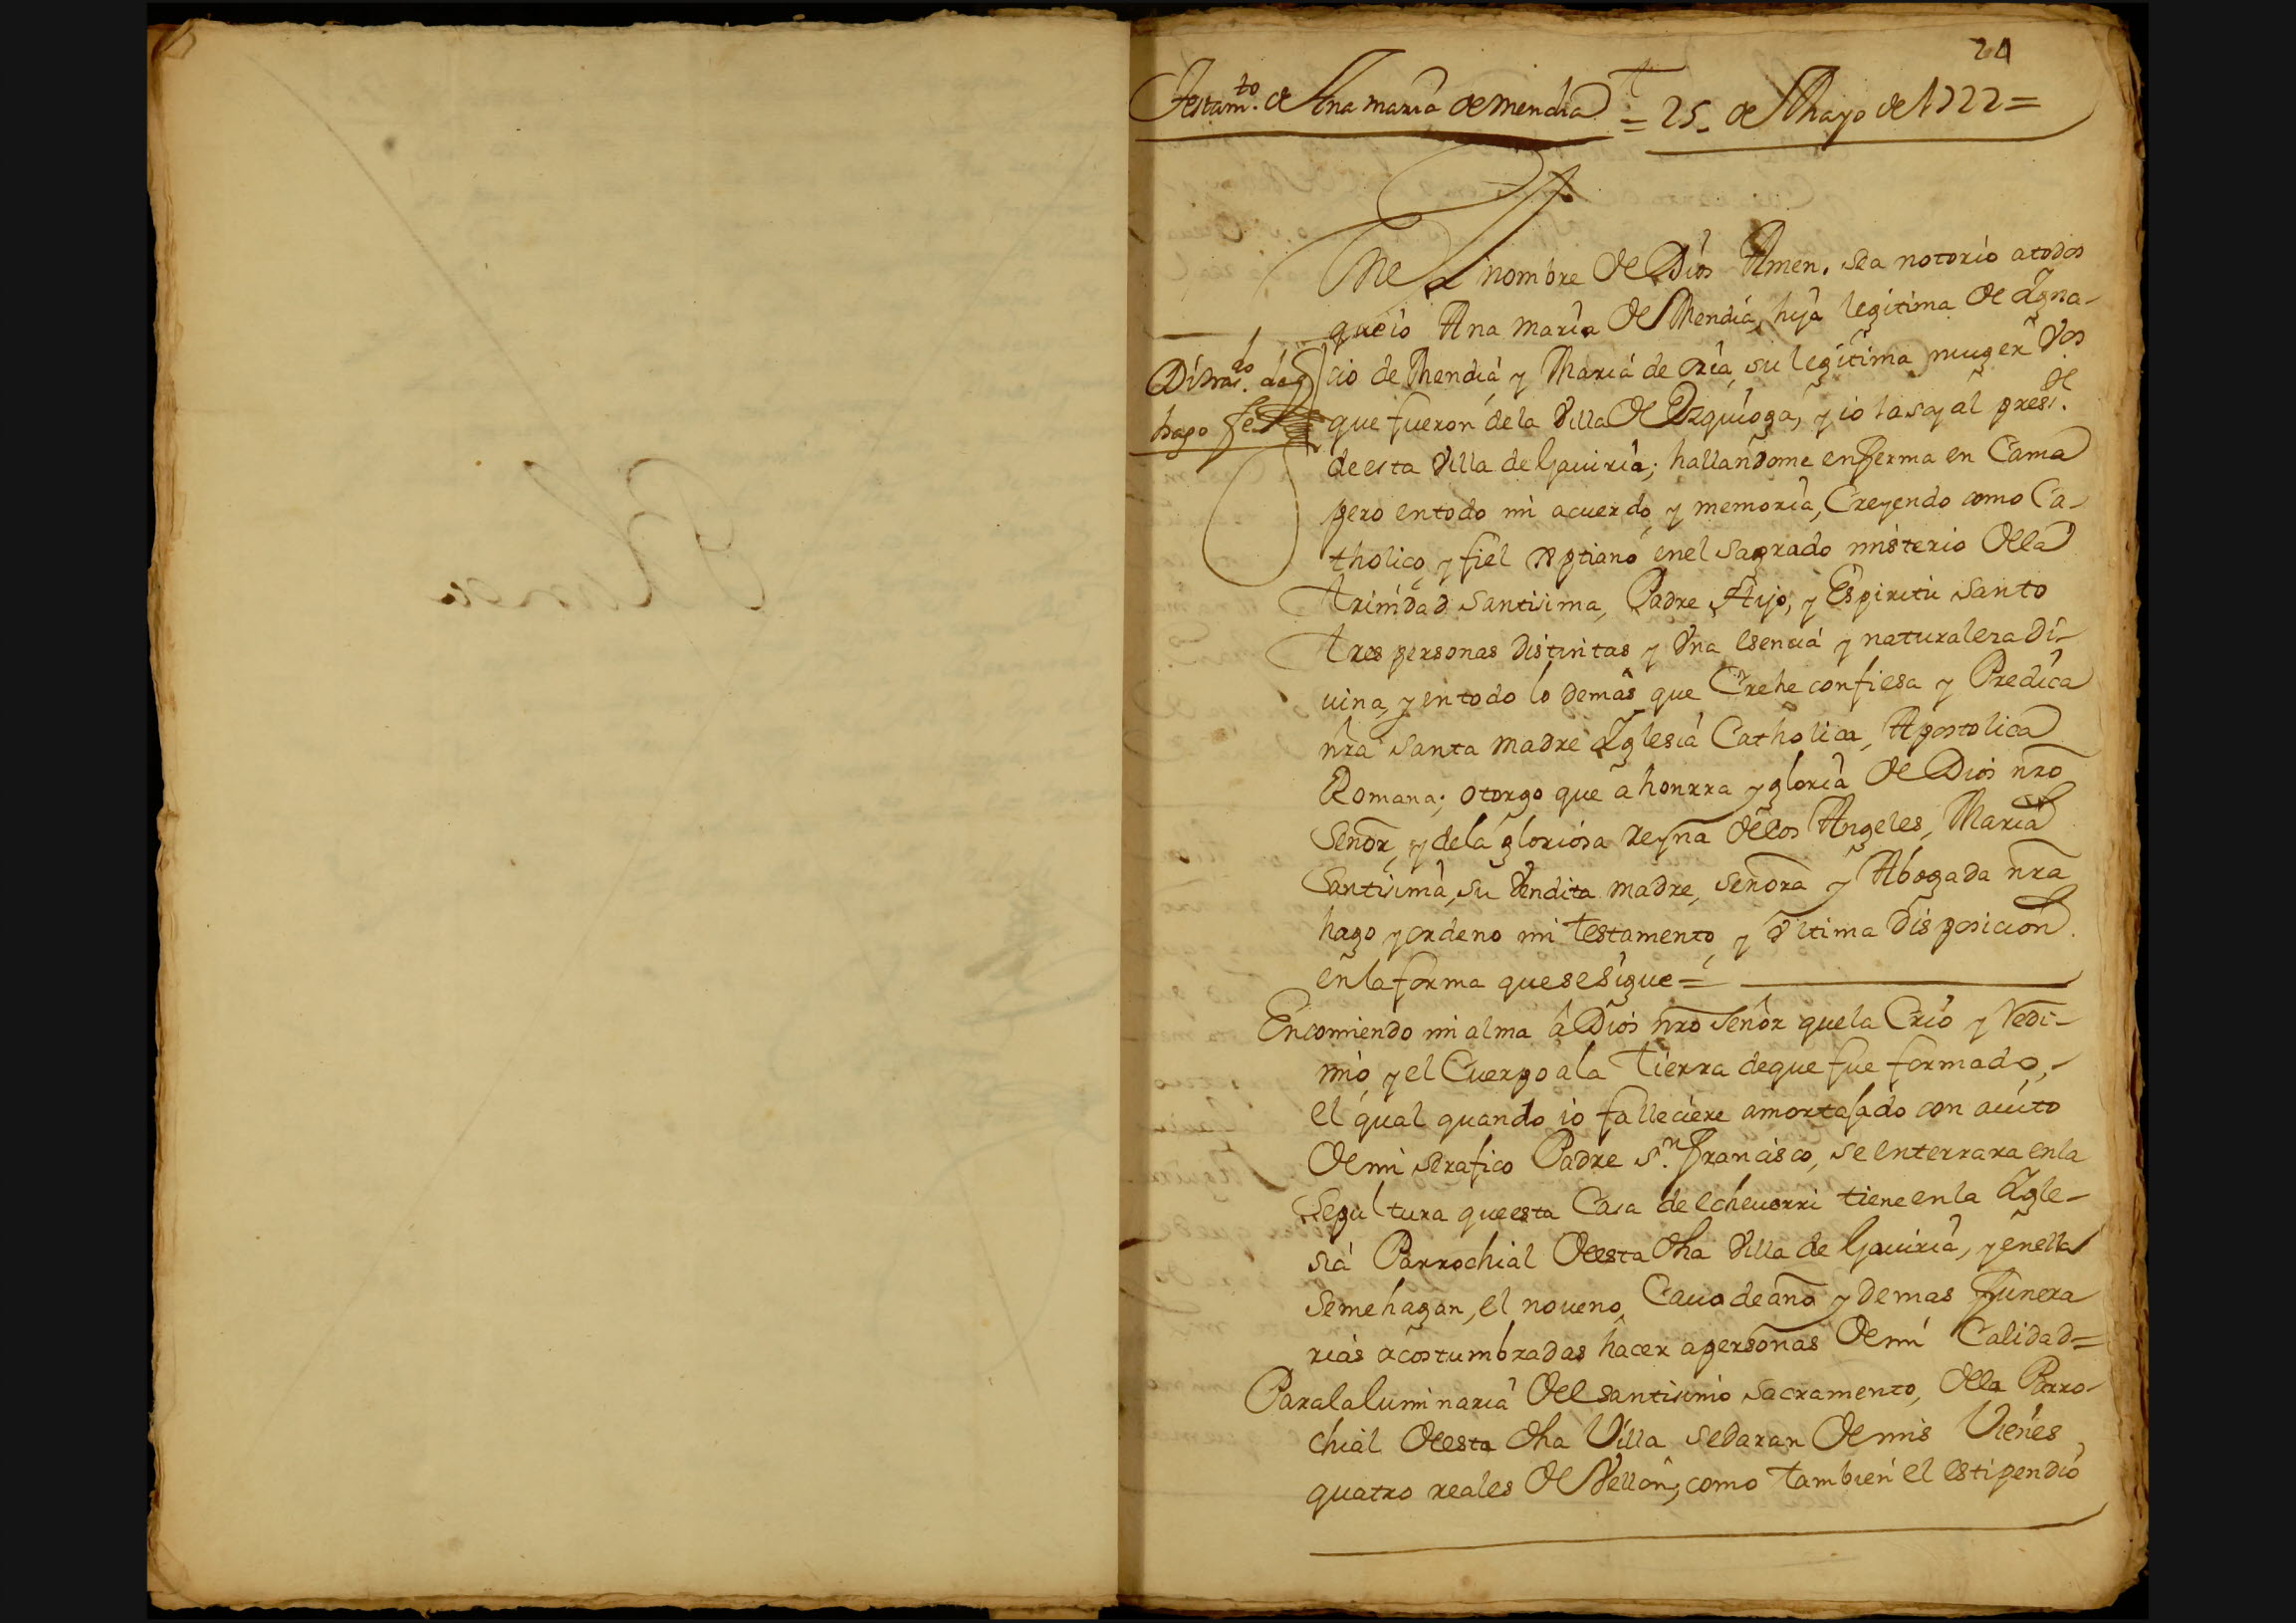 24
Testam.to de Ana maria de mendia = 25. de Mayo de 1722 =
En el nombre de Dios Amen. sea notorio a todos
que io Ana maria de Mendia, hija legitima de Ygna-
cio de Mendia, y Maria de oria, su legitima muger vos
que fueron de la Villa de Ezquioga, y io la soy al pres.te
de esta Villa de Gauiria; hallandome enferma en Cama
pero en todo mi acuerdo, y memoria, Creyendo como Ca-
tholico, y fiel xptiano en el sagrado misterio de la
Trinidad santisima, Padre Hijo, y Espiritu santo
tres personas distintas y Vna esencia y naturaleza di-
uina, y en todo lo demas que Crehe confiesa y Predica
nra santa madre Yglesia Catholica, Apostolica
Romana; otorgo que a honrra y gloria de Dios nro
Señor, y de la gloriosa reyna de los Angeles, Maria
Santisima, su Vendita madre, señora y Abogada nra
hago y ordeno mi testamento, y vltima disposicion
en la forma que se sigue =
Encomiendo mi alma a Dios nro señor que la Crio y redi-
mio, y el Cuerpo a la tierra de que fue formado,
el qual quando io falleciere amortajado con auito
de mi serafico Padre s.n francisco, se enterrara en la
Sepultura que esta Casa de echeuerri tiene en la Ygle-
sia Parrochial de esta dha Villa de Gauiria, y en ella
se me hagan, el noueno, Cauo de año y demas funera
rias acostumbradas hacer a personas de mi Calidad =
Para la luminaria del santisimo sacramento, de la Parro-
chial de esta dha Villa se daran de mis Vienes,
quatro reales de Vellon, como tambien el estipendio
hago fee